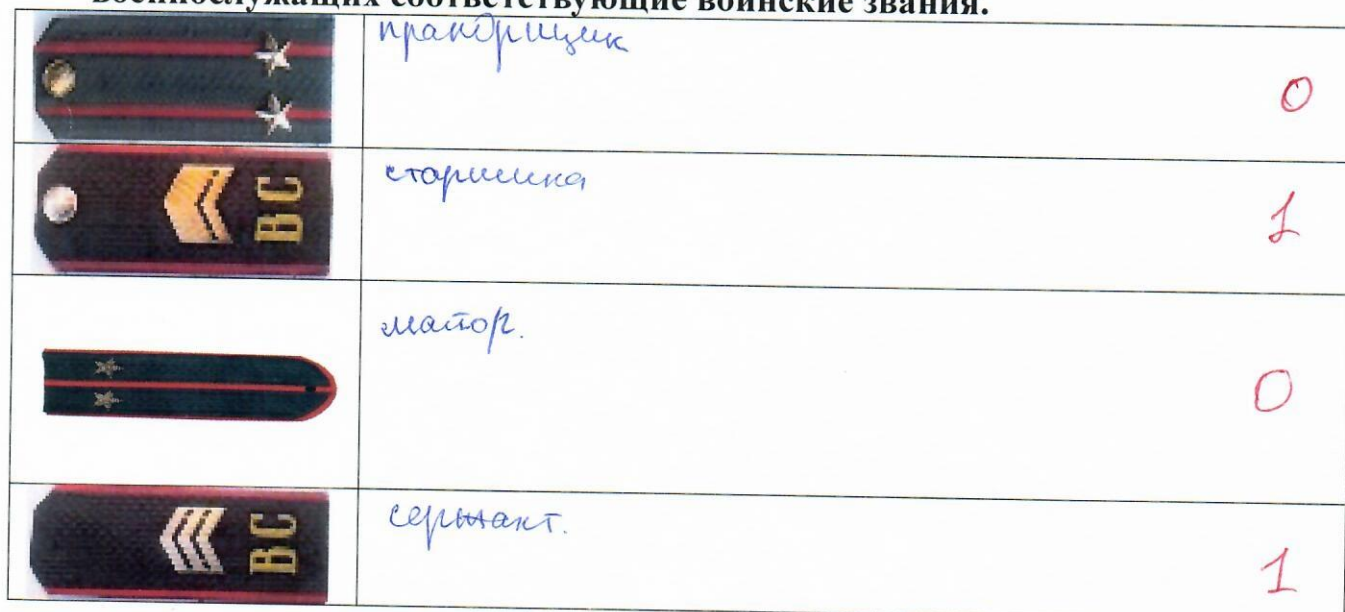 военнослужащих соответствующие воинские звания.
прапорщик
0
ВС
старшина
1
майор.
0
ВС
сержант.
1